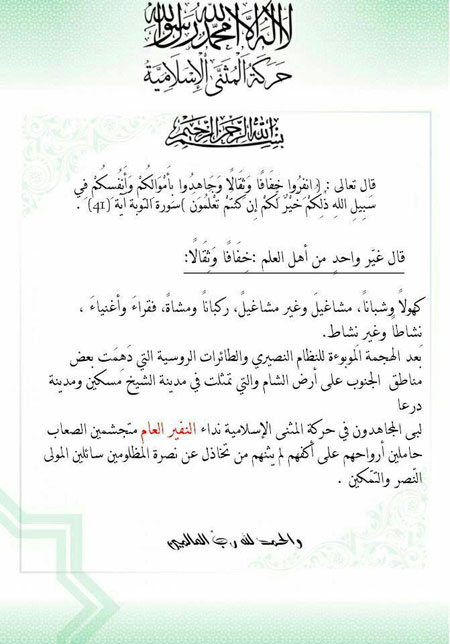 لا إله إلا الله محمد رسول الله
حَركَة المُثنى الإسلاميَّة
بسم الله الرحمن الرحيم
قال تعالى : ( انفِرُوا خِفَافًا وَثِقَالًا وَجَاهِدُوا بِأَمْوَالِكُمْ وَأَنفُسِكُمْ فِي
سَبِيلِ اللهِ ذَٰلِكُمْ خَيْرٌ لَكُمْ إِن كُنتُمْ تَعْلَمُونَ )سورة التوبة آية (41) .
قال غيّر واحدٍ من أهل العلم :خِفَافًا وَثِقَالًا:
كهولاً وشباناً، مشاغيلَ وغير مشاغيلَ، ركباناً ومشاةً، فقراءَ وأغنياءَ ،
نشاطاً وغير نشاط.
بَعد الهجمة المَوبوءة للنظام النصيري والطائرات الروسية التي دَهَمَت بعض
مناطق الجنوب على أرض الشام والتي تمثلت في مدينة الشيخ مَسكين ومدينة
درعا
لبى المجاهدون في حركة المثنى الإسلامية نداء النفير العام متجشمين الصعاب
حاملين أرواحهم على أكفهم لم يثنهم من تخاذل عن نصرة المظلومين سائلين المولى
النّصر والتمّكين .
والحمد لله رب العالمين